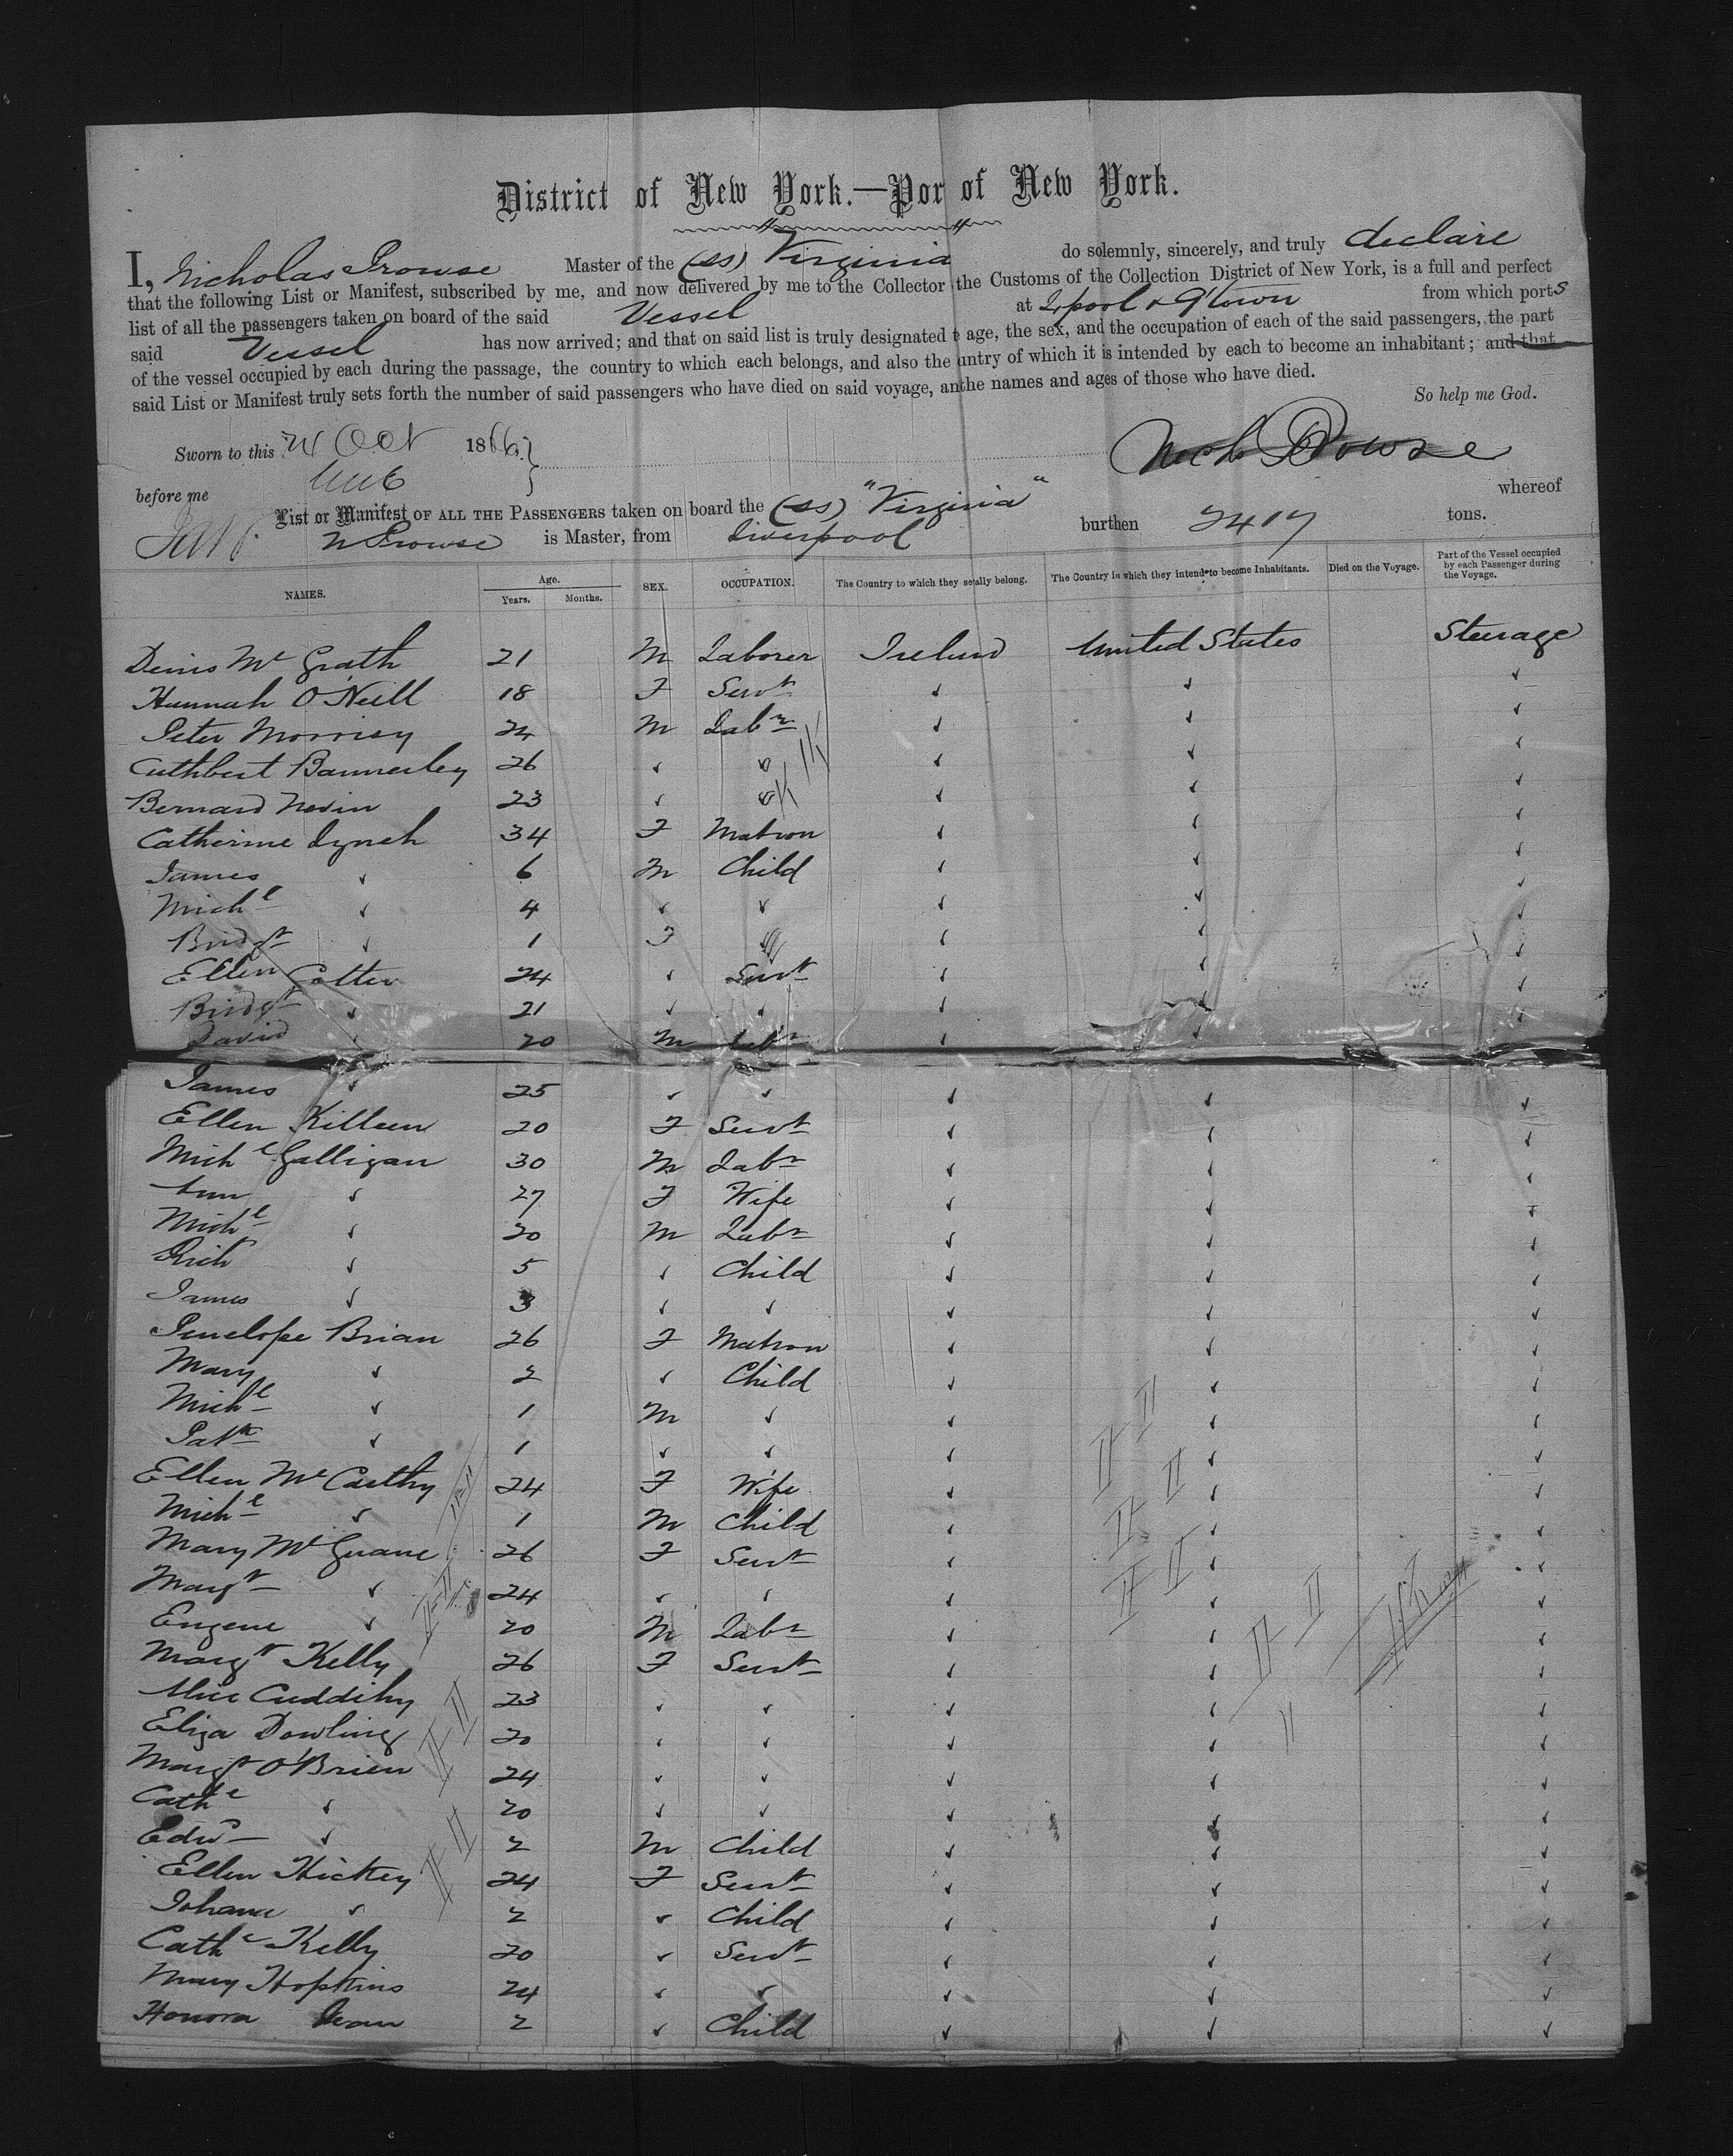 District of New York.—Por of New York.
I, Nicholas Prowse Master of the (SS) Virginia do solemnly, sincerely, and truly declare
that the following List or Manifest, subscribed by me, and now delivered by me to the Collector the Customs of the Collection District of New York, is a full and perfect
list of all the passengers taken on board of the said Vessel at L'pool & Q'town from which ports
said Vessel has now arrived; and that on said list is truly designated age, the sex, and the occupation of each of the said passengers, the part
of the vessel occupied by each during the passage, the country to which each belongs, and also the untry of which it is intended by each to become an inhabitant; and that
said List or Manifest truly sets forth the number of said passengers who have died on said voyage, an the names and ages of those who have died.
So help me God.
Sworn to this 24 Oct 1866 Nich Prowse
before me
List or Manifest OF ALL THE PASSENGERS taken on board the (SS) "Virginia" whereof
N Prowse is Master, from Liverpool burthen 2417 tons.
NAMES. Age. Years. Months. SEX. OCCUPATION. The Country to which they seally belong. The Country in which they intend to become Inhabitants. Died on the Voyage. Part of the Vessel occupied by each Passenger during the Voyage.
Denis Mc Grath 21 M Laborer Ireland United States Steerage
Hannah O'Neill 18 F Servt ✓ ✓ ✓
Peter Morrisy 24 M Labr ✓ ✓ ✓
Cuthbert Bannerley 26 ✓ ✓ ✓ ✓ ✓
Bernard Nevin 23 ✓ ✓ ✓ ✓ ✓
Catherine Lynch 34 F Matron ✓ ✓ ✓
James ✓ 6 M Child ✓ ✓ ✓
Michl ✓ 4 ✓ ✓ ✓ ✓ ✓
Bridgt ✓ 1 F ✓ ✓ ✓ ✓
Ellen Cotter 24 ✓ Servt ✓ ✓ ✓
Bridgt ✓ 21 ✓ ✓ ✓ ✓ ✓
David ✓ 20 M Labr ✓ ✓ ✓
James ✓ 25 ✓ ✓ ✓ ✓ ✓
Ellen Killeen 20 F Servt ✓ ✓ ✓
Michl Galligan 30 M Labr ✓ ✓ ✓
Ann ✓ 27 F Wife ✓ ✓ ✓
Michl ✓ 20 M Labr ✓ ✓ ✓
Richd ✓ 5 ✓ Child ✓ ✓ ✓
James ✓ 3 ✓ ✓ ✓ ✓ ✓
Penelope Brian 26 F Matron ✓ ✓ ✓
Mary ✓ 2 ✓ Child ✓ ✓ ✓
Michl ✓ 1 M ✓ ✓ ✓ ✓
Patk ✓ 1 ✓ ✓ ✓ ✓ ✓
Ellen Mc Carthy 24 F Wife ✓ ✓ ✓
Michl ✓ 1 M Child ✓ ✓ ✓
Mary Mc Guane 26 F Servt ✓ ✓ ✓
Margt ✓ 24 ✓ ✓ ✓ ✓ ✓
Eugene ✓ 20 M Labr ✓ ✓ ✓
Margt Kelly 26 F Servt ✓ ✓ ✓
Alice Cuddihy 23 ✓ ✓ ✓ ✓ ✓
Eliza Dowling 20 ✓ ✓ ✓ ✓ ✓
Margt O'Brien 24 ✓ ✓ ✓ ✓ ✓
Cathe ✓ 20 ✓ ✓ ✓ ✓ ✓
Edwd ✓ 2 M Child ✓ ✓ ✓
Ellen Hickey 24 F Servt ✓ ✓ ✓
Johana ✓ 2 ✓ Child ✓ ✓ ✓
Cathe Kelly 20 ✓ Servt ✓ ✓ ✓
Mary Hopkins 24 ✓ ✓ ✓ ✓ ✓
Honora 2 ✓ Child ✓ ✓ ✓